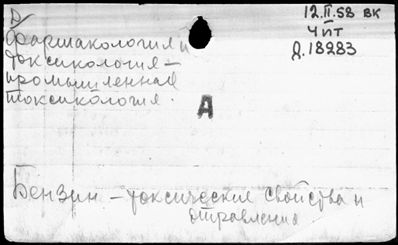 D/
фармакология и
токсикология –
промышленная
токсикология.
12.II.58 вк
Чит
Д.18283
А
Бензин – токсические свойства и
отравления